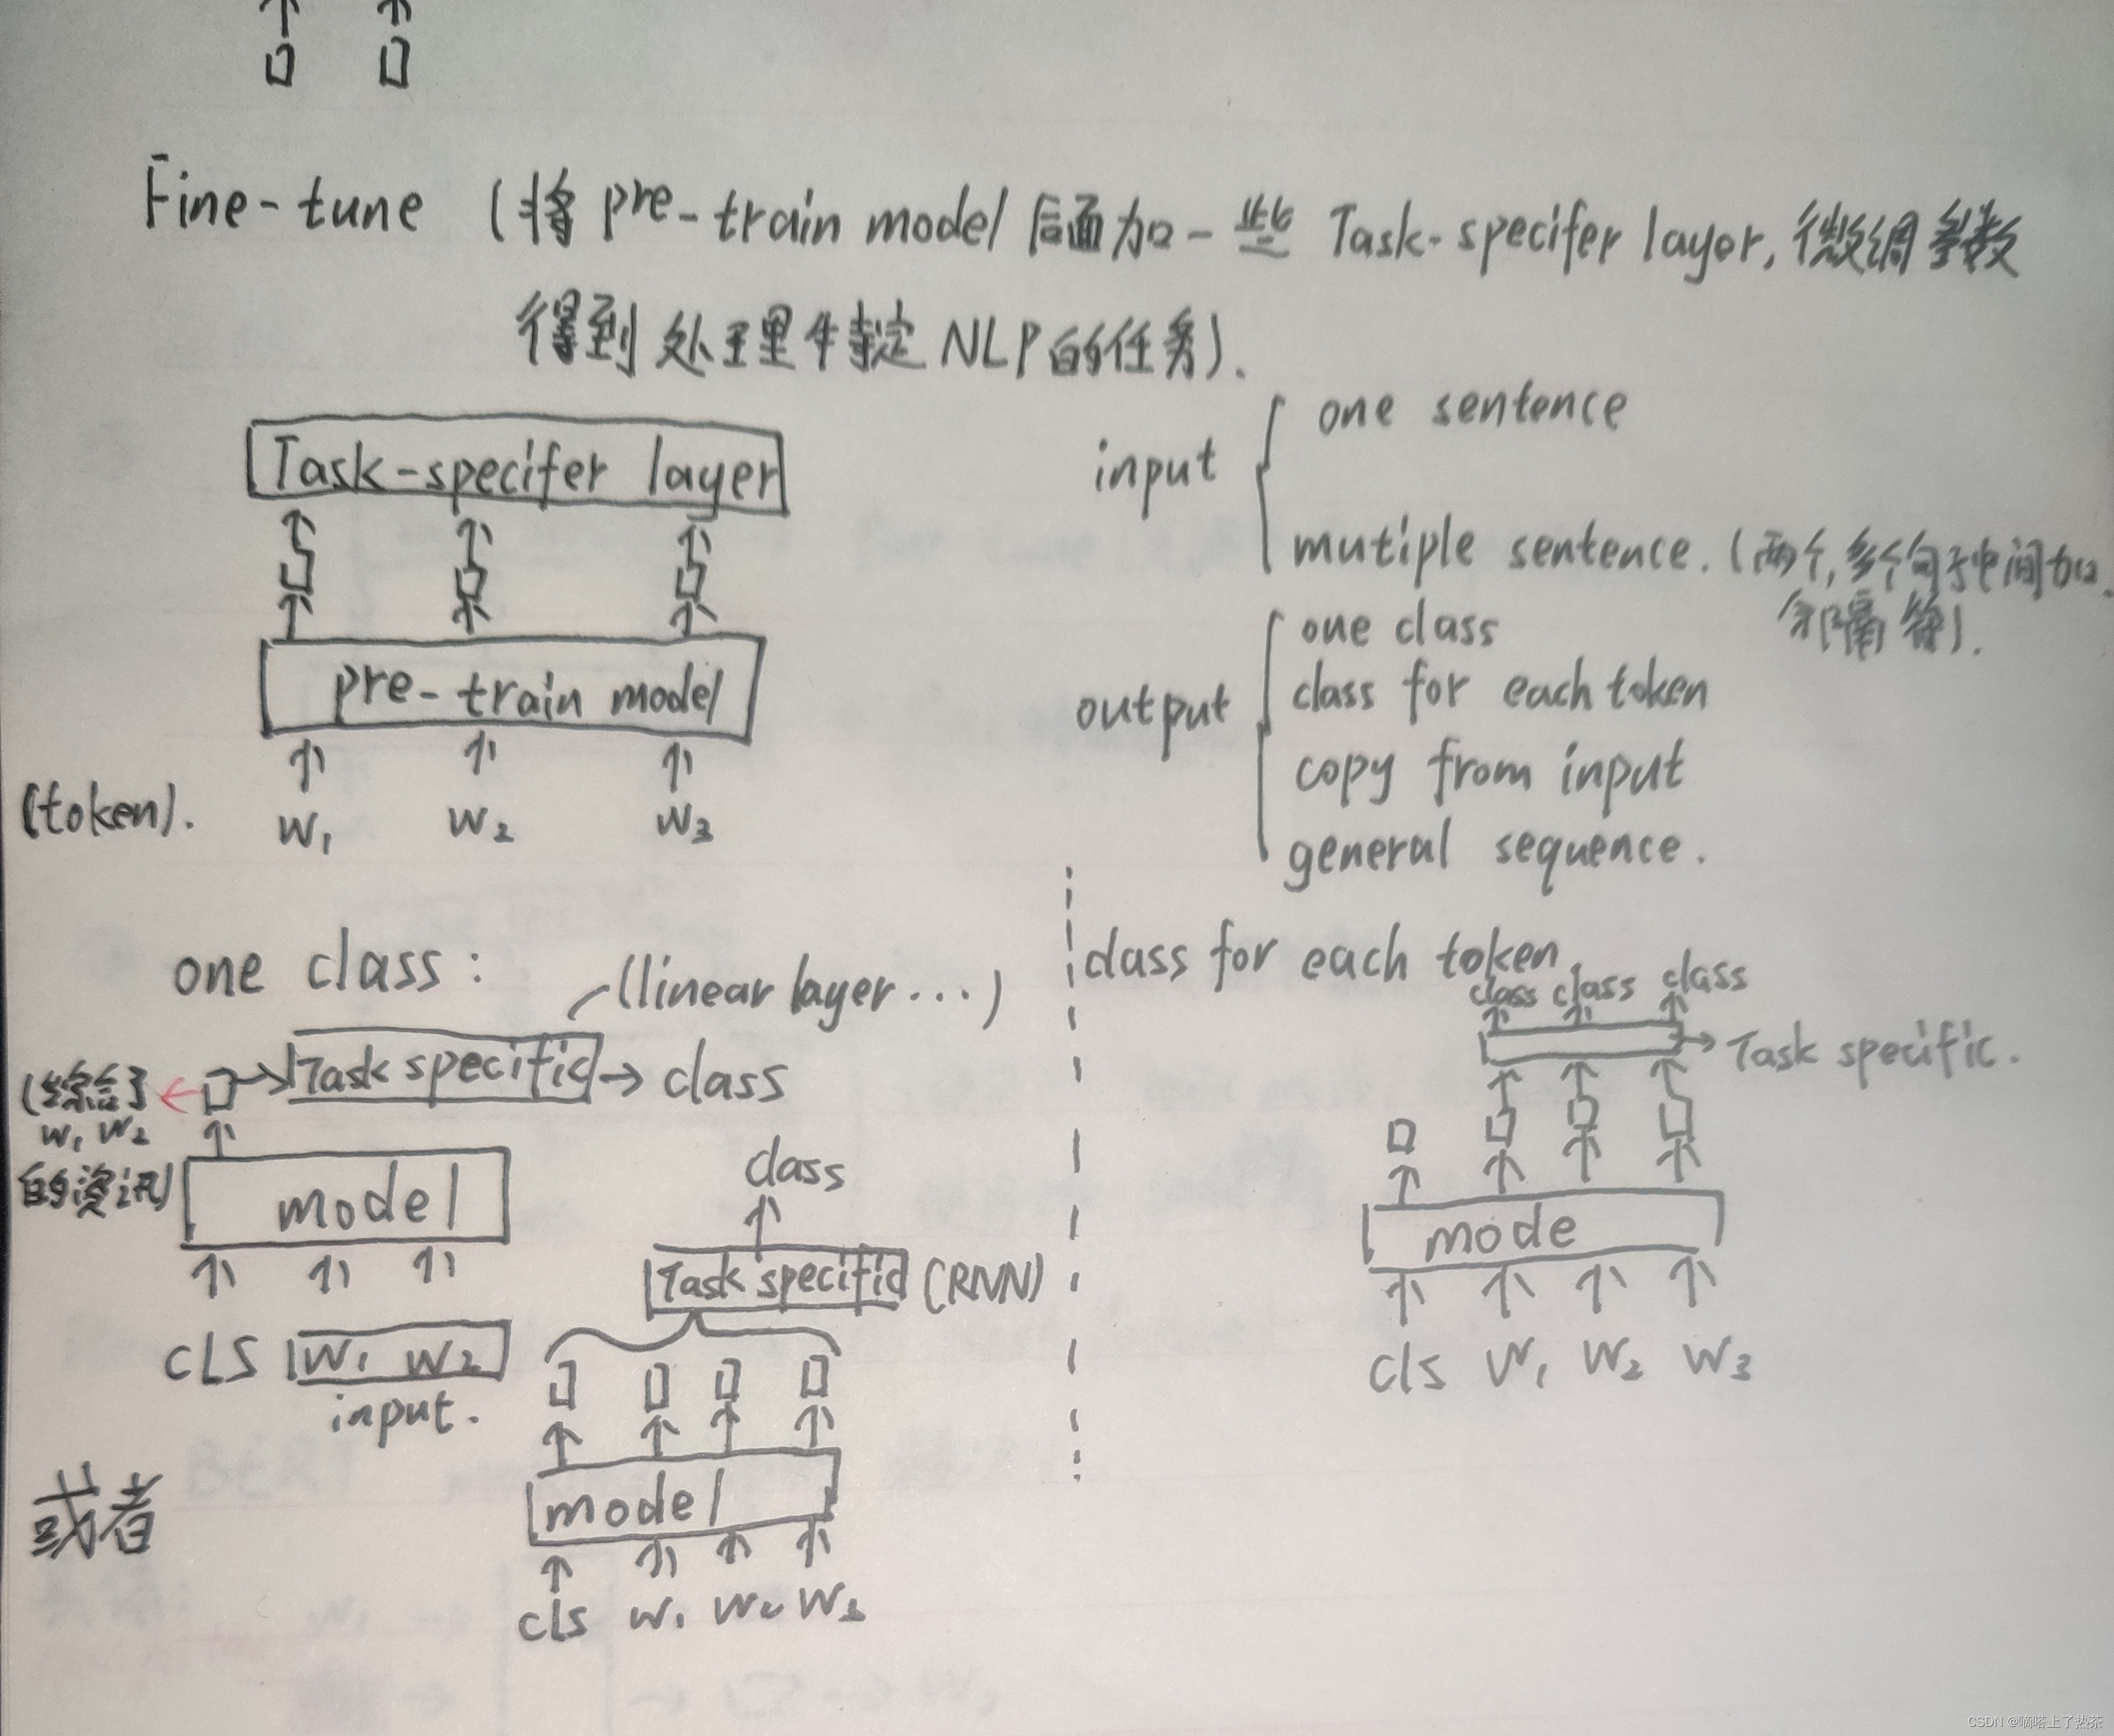 Fine-tune (将 pre-train model 后面加一些 Task-specifer layer, 微调参数
得到处理特定NLP的任务).
Task-specifer layer
pre-train model
(token). W1 W2 W3
input
one sentence
mutiple sentence. (两个,多个句子中间加
分隔符).
output
one class
class for each token
copy from input
general sequence.
one class:
(linear layer ...)
Task specific → class
(综合了
W1 W2
的资讯)
model
CLS W1 W2
input.
或者
class
Task specific (RNN)
model
cls W1 W2 W3
class for each token
class class class
Task specific.
mode
cls W1 W2 W3
CSDN @嘀嗒上了热茶